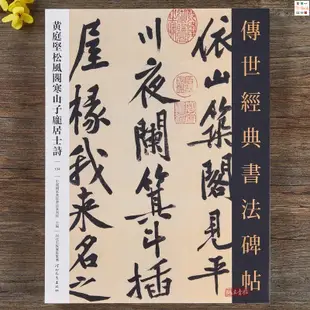 傳世經典書法碑帖
依山築閣見平
川夜闌箕斗插
屋椽我来名之
黄庭堅松風閣寒山子龐居士詩